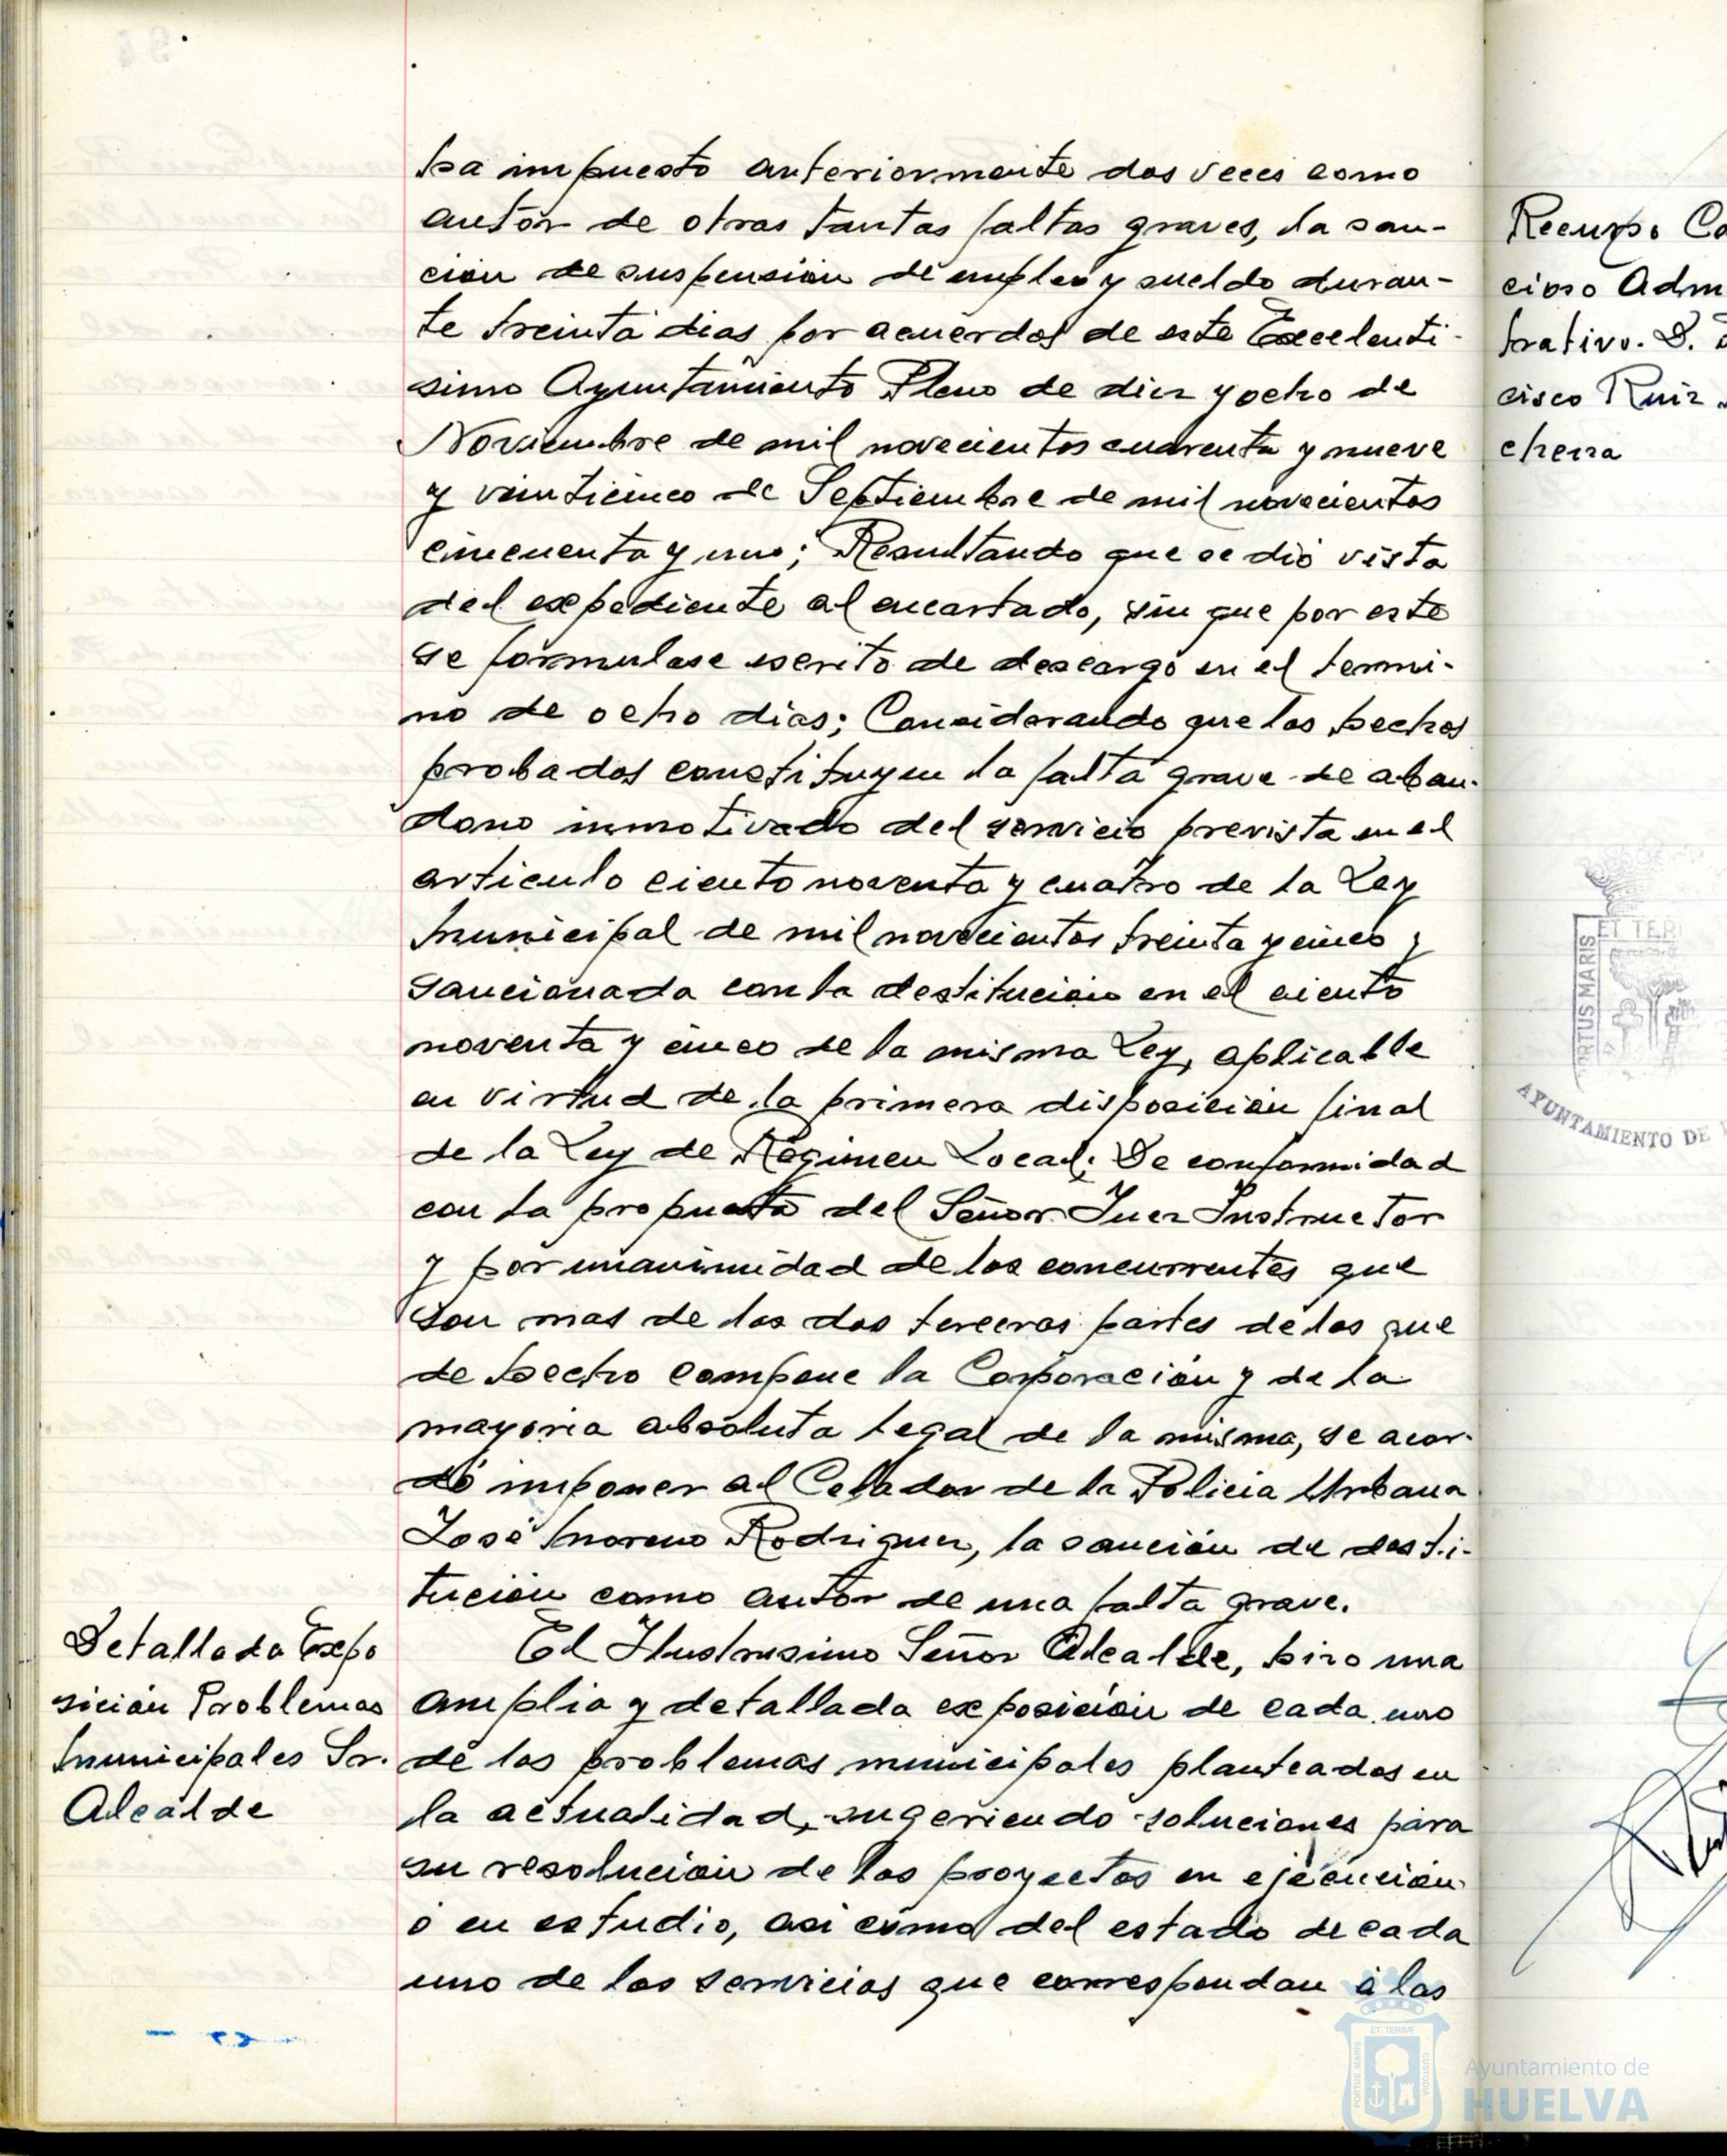 ha impuesto anteriormente dos veces como
autor de otras tantas faltas graves, la san-
ción de suspensión de empleo y sueldo duran-
te treinta dias por acuerdos de este Excelenti-
simo Ayuntamiento Pleno de diez y ocho de
Noviembre de mil novecientos cuarenta y nueve
y veinticinco de Septiembre de mil novecientos
cincuenta y uno; Resultando que se dió vista
del expediente al encartado, sin que por este
se formulase escrito de descargo en el termi-
no de ocho dias; Considerando que los hechos
probados constituyen la falta grave de aban-
dono inmotivado del servicio prevista en el
articulo ciento noventa y cuatro de la Ley
Municipal de mil novecientos treinta y cinco y
sancionada con la destitución en el ciento
noventa y cinco de la misma Ley, aplicable
en virtud de la primera disposición final
de la Ley de Régimen Local; De conformidad
con la propuesta del Señor Juez Instructor
y por unanimidad de los concurrentes que
son mas de las dos terceras partes de los que
de hecho compone la Corporación y de la
mayoria absoluta legal de la misma, se acor-
dó imponer al Celador de la Policia Urbana
José Moreno Rodriguez, la sanción de desti-
tución como autor de una falta grave.
Detallada Expo
sición Problemas
Municipales Sr.
Alcalde
El Ilustrisimo Señor Alcalde, hizo una
amplia y detallada exposición de cada uno
de los problemas municipales planteados en
la actualidad, sugeriendo soluciones para
su resolución de los proyectos en ejecución
ó en estudio, asi como del estado de cada
uno de los servicios que correspondan á las
Recurso Co
cioso Adm
trativo. D.
cisco Ruiz
cheza
ET TER
PORTUS MARIS
AYUNTAMIENTO DE
ET TERRÆ
PORTUS MARIS
CUSTODIA
Ayuntamiento de
HUELVA